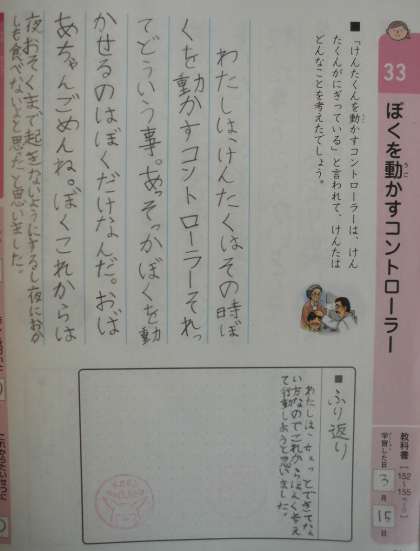 33
ぼくを動かすコントローラー
教科書
152
〜155ページ
学習した日
3月15日
■「けんたくんを動かすコントローラーは、けん
たくんがにぎっている」と言われて、けんたは
どんなことを考えたでしょう。
わたしは、けんたくはその時ぼ
くを動かすコントローラーそれっ
てどういう事。あっそっかぼくを動
かせるのはぼくだけなんだ。おば
あちゃんごめんね。ぼくこれからは
夜おそくまで起きないようにするし夜におか
しも食べないよと思ったと思いました。
■ふり返り
わたしはこちょっとできてな
い方なのでこれからはよく考え
て行動しようと思いました。